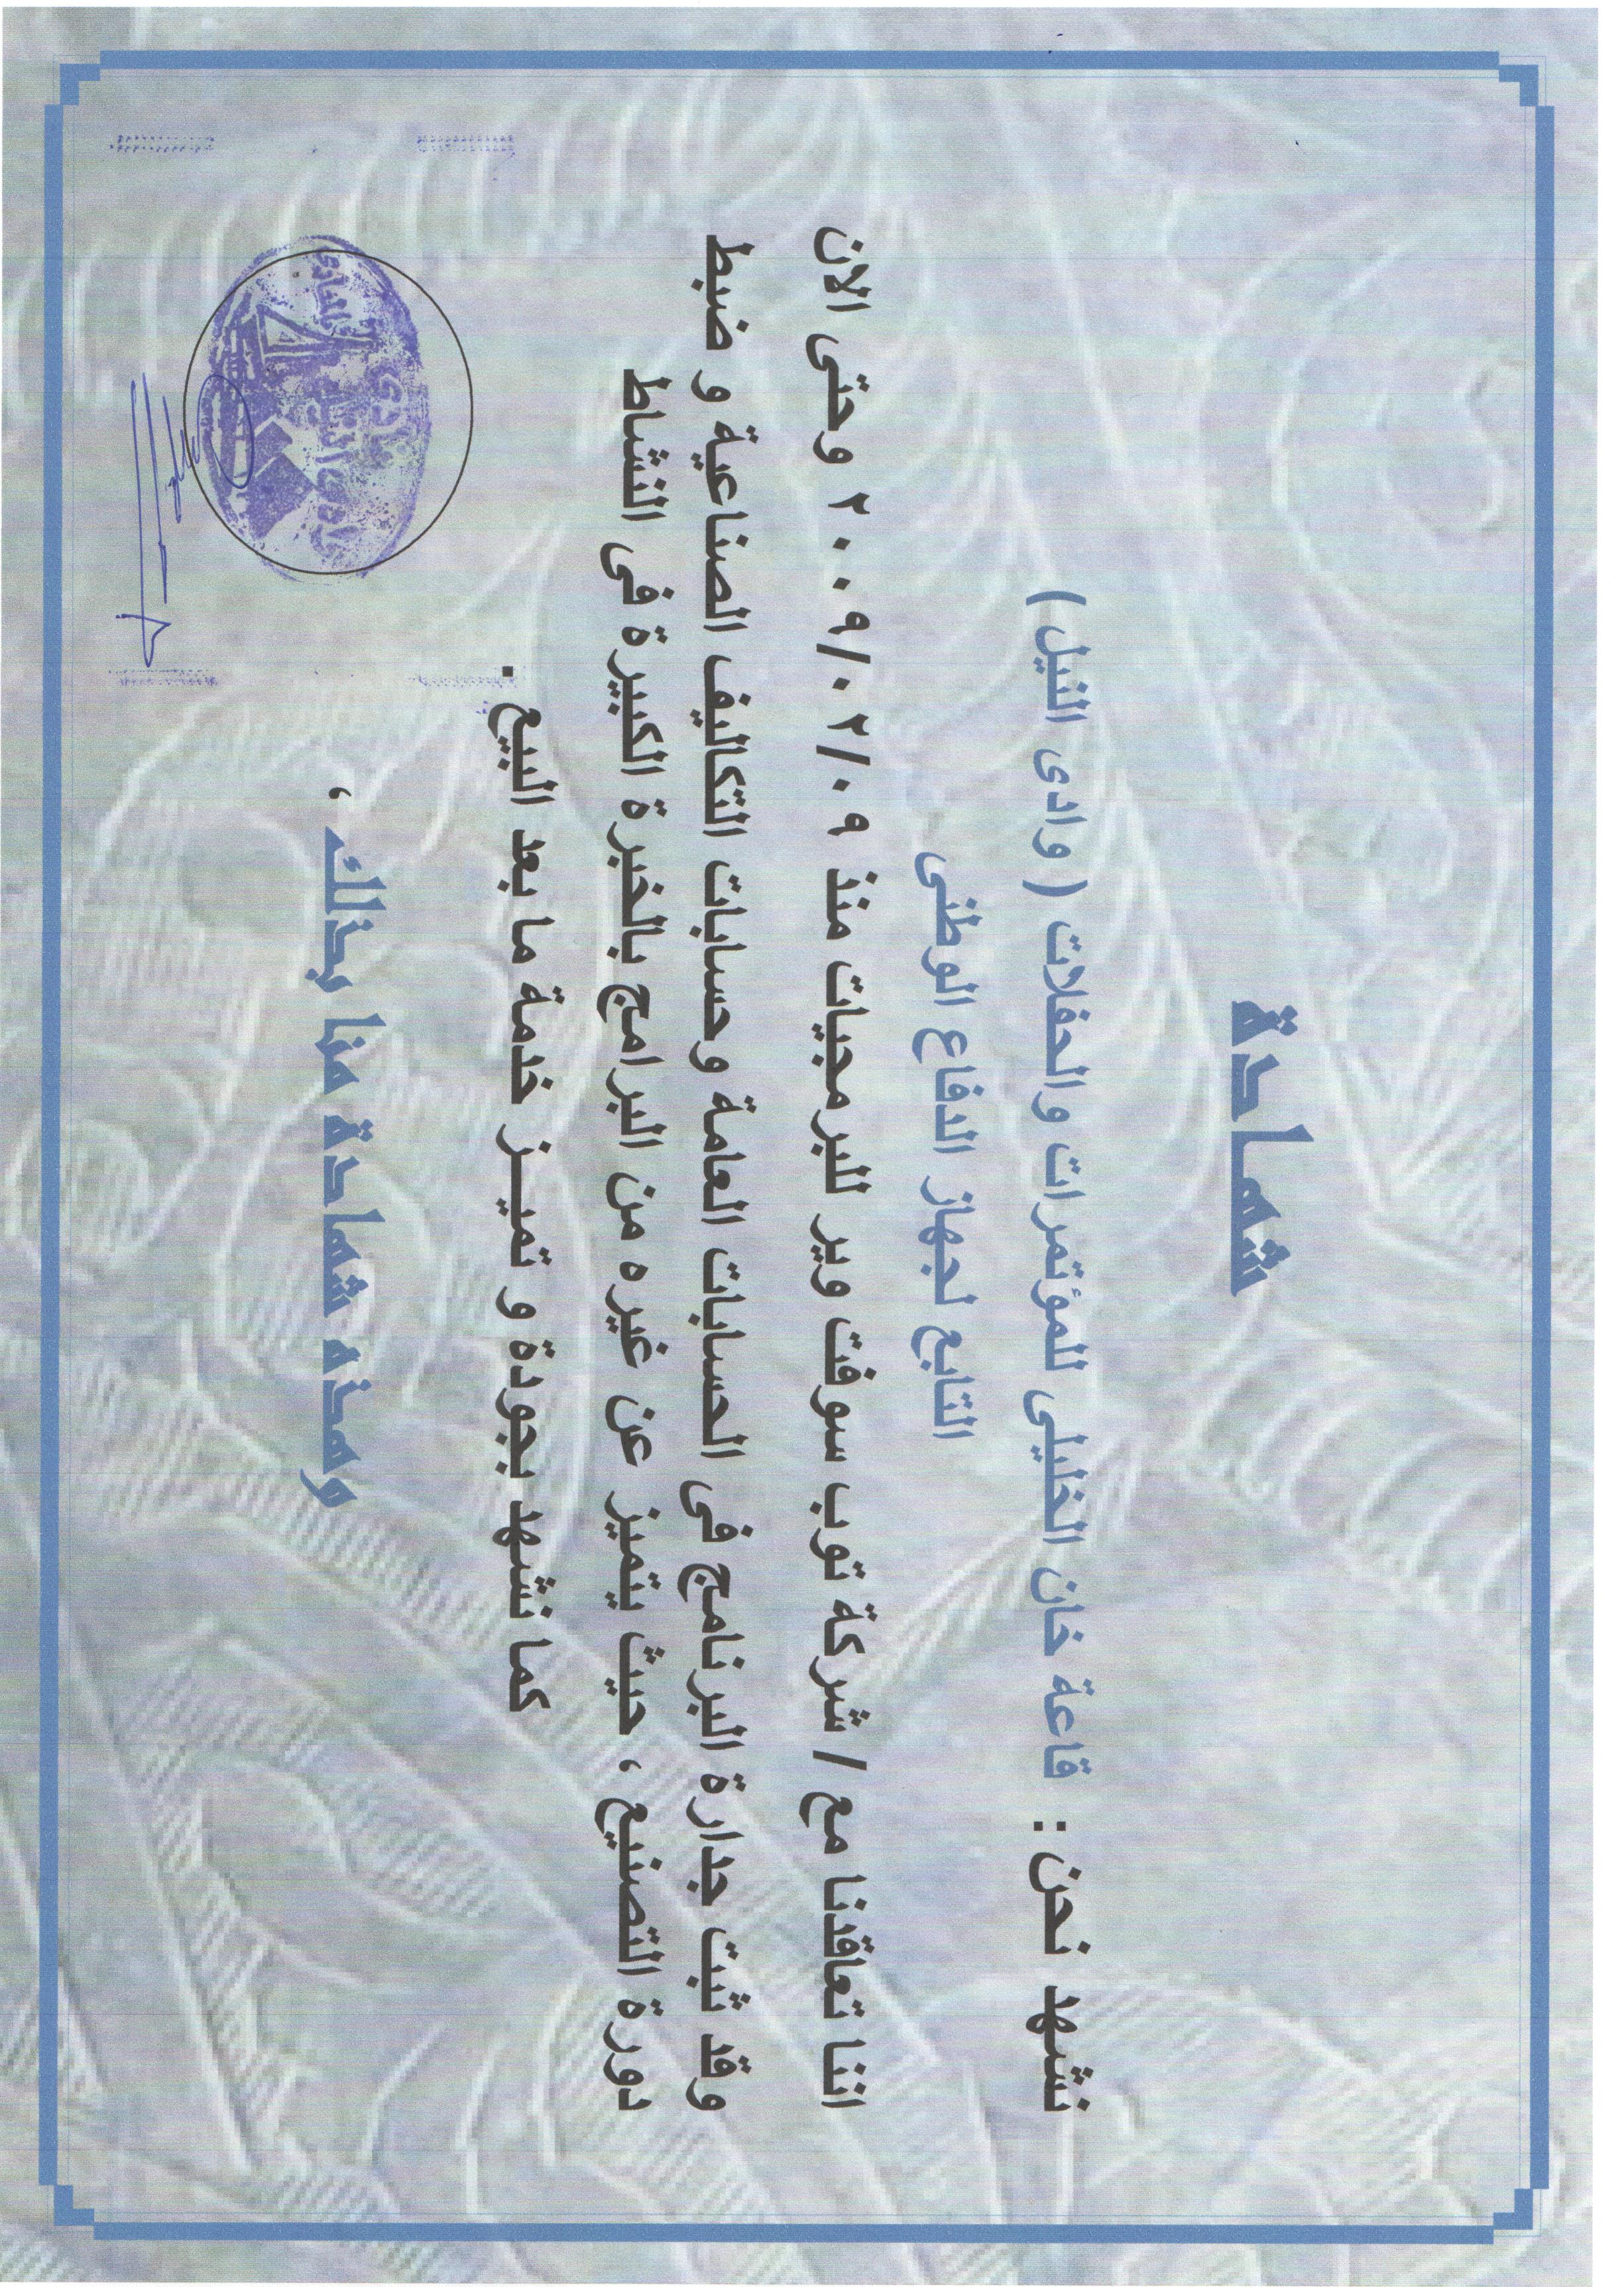 شهادة
نشهد نحن : قاعة خان الخليلى للمؤتمرات والحفلات ( وادى النيل )
التابع لجهاز الدفاع الوطنى
اننا تعاقدنا مع / شركة توب سوفت وير للبرمجيات منذ ٢٠٠٩/٠٢/٠٩ وحتى الان
وقد ثبت جدارة البرنامج فى الحسابات العامة وحسابات التكاليف الصناعية و ضبط
دورة التصنيع ، حيث يتميز عن غيره من البرامج بالخبرة الكبيرة فى النشاط
كما نشهد بجودة و تميـز خدمة ما بعد البيع .
وهذه شهادة منا بذلك ،